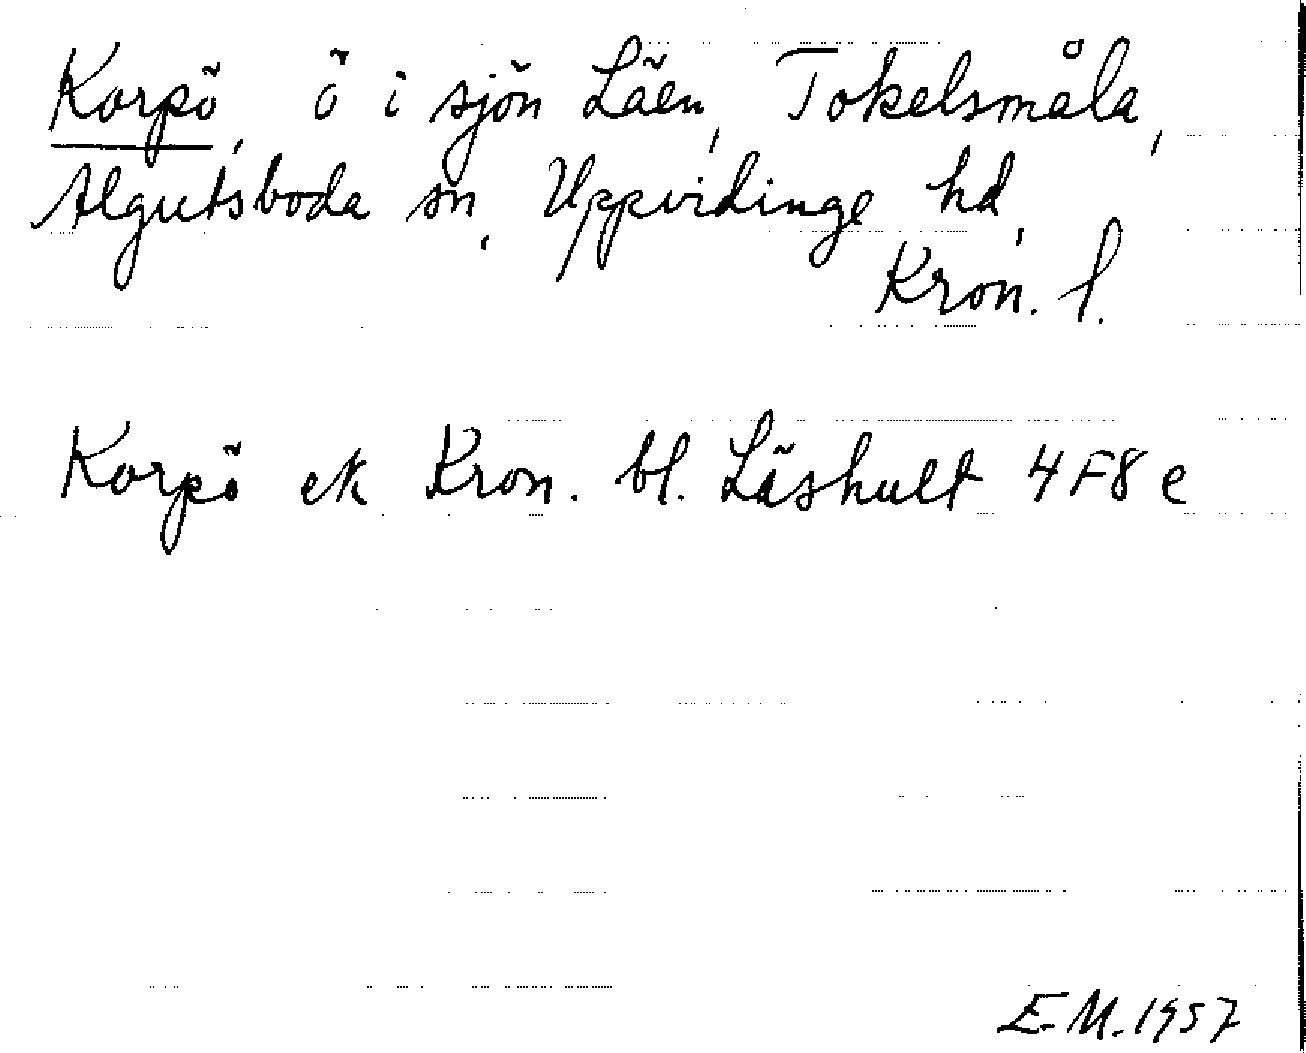 Korpö, ö i sjön Läen, Tokelsmåla,
Algutsboda sn, Uppvidinge hd,
Kron. l.
Korpö ek Kron. bl. Läshult 4F8e
E.M. 1957